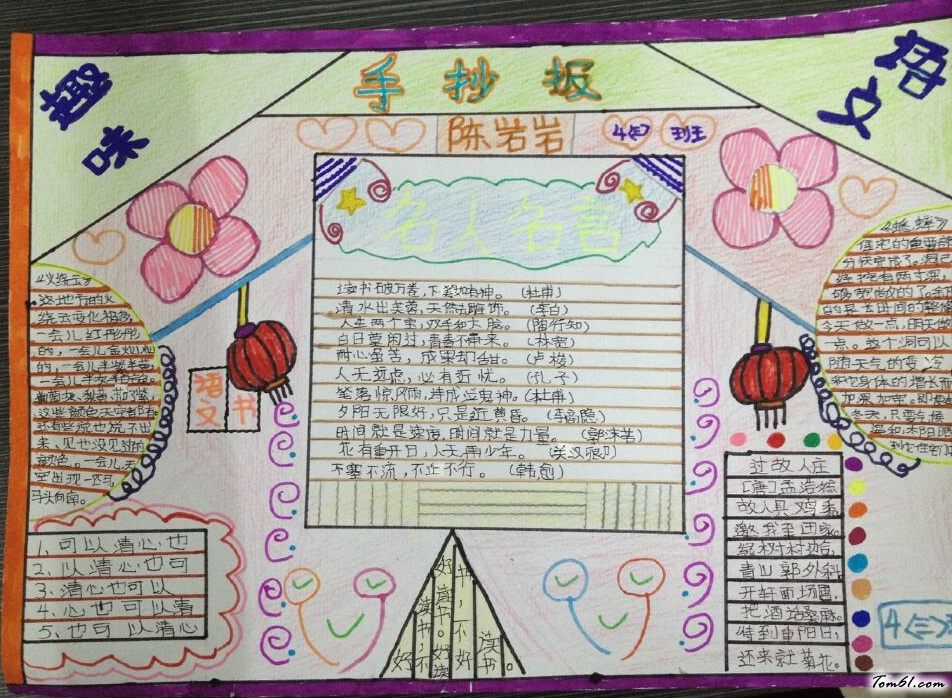 趣味
手抄报
语文
陈岩岩
4<三>班
名人名言
读书破万卷,下笔如有神。(杜甫)
清水出芙蓉,天然去雕饰。(李白)
人生两个宝,双手和大脑。(陶行知)
白日莫闲过,青春不再来。(林宽)
人无远虑,必有近忧。(孔子)
笔落惊风雨,诗成泣鬼神。(杜甫)
夕阳无限好,只是近黄昏。(李商隐)
时间就是速度,时间就是力量。(郭沫若)
花有重开日,人无再少年。
不塞不流,不止不行。(韩愈)
《火烧云》
这地方的火
烧云变化极多,
一会儿红彤彤
的,一会儿金灿灿
的,一会儿半紫半黄,
一会儿半灰半百合
这些颜色天空都有
还有些说也说不出
来、见也没见过的
颜色。一会儿,天
空出现一匹马
马头向南。
语文书
《蟋蟀》
住宅的重要部
分快完成了。洞已
经挖有两寸深,
够宽敞的了。余下
今天做一点,明天做
一点。这个洞可以
随天气的变冷
和它身体的增长而
加深加宽。即使
冬天,只要气候
温和,太阳晒
1、可以清心也
2、以清心也可
3、清心也可以
4、心也可以清
5、也可以清心
好读书,不好读书。
好读书,不好读书。
过故人庄
[唐]孟浩然
故人具鸡黍,
邀我至田家。
绿树村边合,
青山郭外斜
开轩面场圃,
把酒话桑麻。
待到重阳日,
还来就菊花。
4<三>
Tom61.com